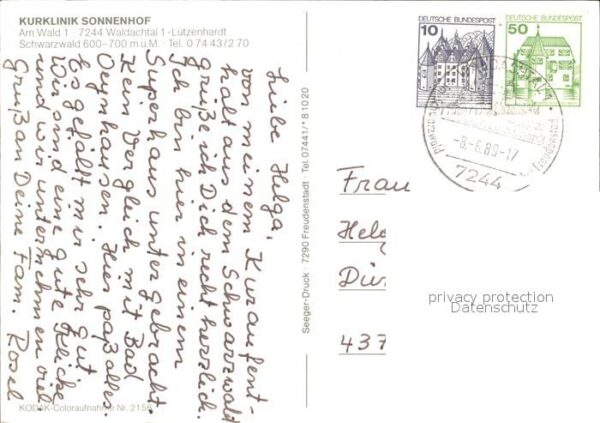 KURKLINIK SONNENHOF
Am Wald 1 7244 Waldachtal 1-Lützenhardt
Schwarzwald 600–700 m ü.M. · Tel. 0 74 43/2 70
Liebe Helga,
von meinem Kuraufent-
halt aus dem Schwarzwald
grüße ich Dich recht herzlich.
Ich bin hier in einem
Superhaus untergebracht.
Kein Vergleich mit Bad
Oeynhausen. Hier paßt alles.
Es gefällt mir sehr gut
Wir sind eine gute Klicke
und wir unternehmen viel.
Gruß an Deine Fam. Rosel
KODAK-Coloraufnahme Nr. 2158
Seeger-Druck 7290 Freudenstadt Tel. 07441/* 8 10 20
DEUTSCHE BUNDESPOST
10
DEUTSCHE BUNDESPOST
50
-8.-6.89-17
7244
Freudenstadt
Frau
Helg
Dür
437
privacy protection
Datenschutz